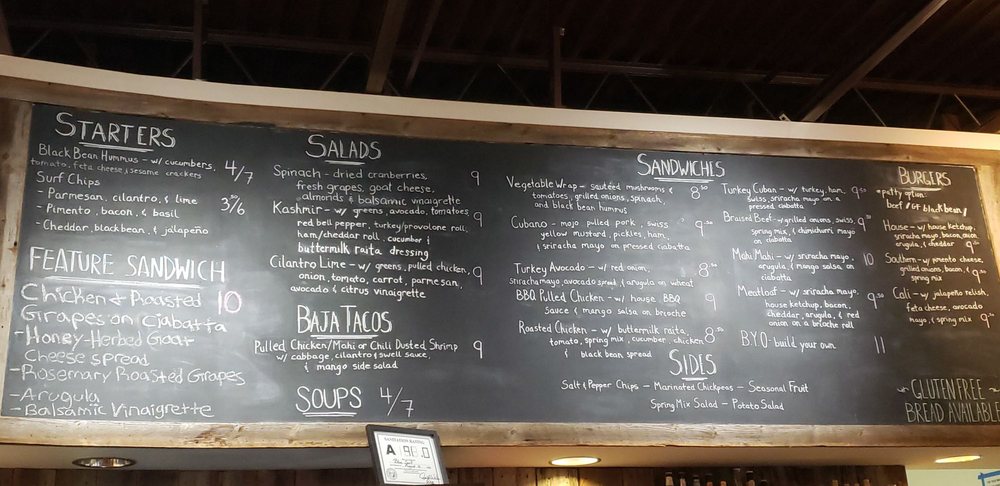 STARTERS
Black Bean Hummus - w/ cucumbers,
tomato, feta cheese, sesame crackers 4/7
Surf Chips 3/6
- Parmesan, cilantro, & lime
- Pimento, bacon, & basil
- Cheddar, blackbean, & jalapeño
FEATURE SANDWICH
Chicken & Roasted 10
Grapes on Ciabatta
- Honey-Herbed Goat
Cheese spread
- Rosemary Roasted Grapes
- Arugula
- Balsamic Vinaigrette
SALADS
Spinach - dried cranberries, 9
fresh grapes, goat cheese,
almonds & balsamic vinaigrette
Kashmir - w/ greens, avocado, tomatoes 9
red bell pepper, turkey/provolone roll,
ham/cheddar roll, cucumber &
buttermilk raita dressing
Cilantro Lime - w/ greens, pulled chicken, 9
onion, tomato, carrot, parmesan,
avocado & citrus vinaigrette
BAJA TACOS
Pulled Chicken/Mahi or Chili Dusted Shrimp 9
w/ cabbage, cilantro & swell sauce,
& mango side salad
SOUPS 4/7
SANDWICHES
Vegetable Wrap - sautéed mushrooms & 8.50
tomatoes, grilled onions, spinach,
and black bean humus
Cubano - mojo pulled pork, swiss 9.50
yellow mustard, pickles, ham,
& sriracha mayo on pressed ciabatta
Turkey Avocado - w/ red onion, 8.50
sriracha mayo, avocado spread, & arugula on wheat
BBQ Pulled Chicken - w/ house BBQ 9
sauce & mango salsa on brioche
Roasted Chicken - w/ buttermilk raita, 8.50
tomato, spring mix, cucumber, chicken
& black bean, spread
Turkey Cuban - w/ turkey, ham, 9.50
swiss, sriracha mayo on a
pressed ciabatta
Braised Beef - w/ grilled onions, swiss, 9.50
spring mix, & chimichurri mayo
on ciabatta
Mahi Mahi - w/ sriracha mayo, 10
arugula, & mango salsa, on
ciabatta
Meatloaf - w/ sriracha mayo, 9.50
house ketchup, bacon,
cheddar, arugula, & red
onion on a brioche roll
B.Y.O - build your own 11
SIDES
Salt & Pepper Chips - Marinated Chickpeas - Seasonal Fruit
Spring Mix Salad - Potato Salad
BURGERS
*patty option*
beef / or black bean /
House - w/ house ketchup,
sriracha mayo, bacon, onion,
arugula, & cheddar 9.50
Southern - w/ pimento cheese,
grilled onions, bacon, & 9.50
spring mix
Cali - w/ jalapeño relish,
feta cheese, avocado
mayo, & spring mix 9.50
~ GLUTEN FREE ~
BREAD AVAILABLE
SANITATION RATING
A 98.0